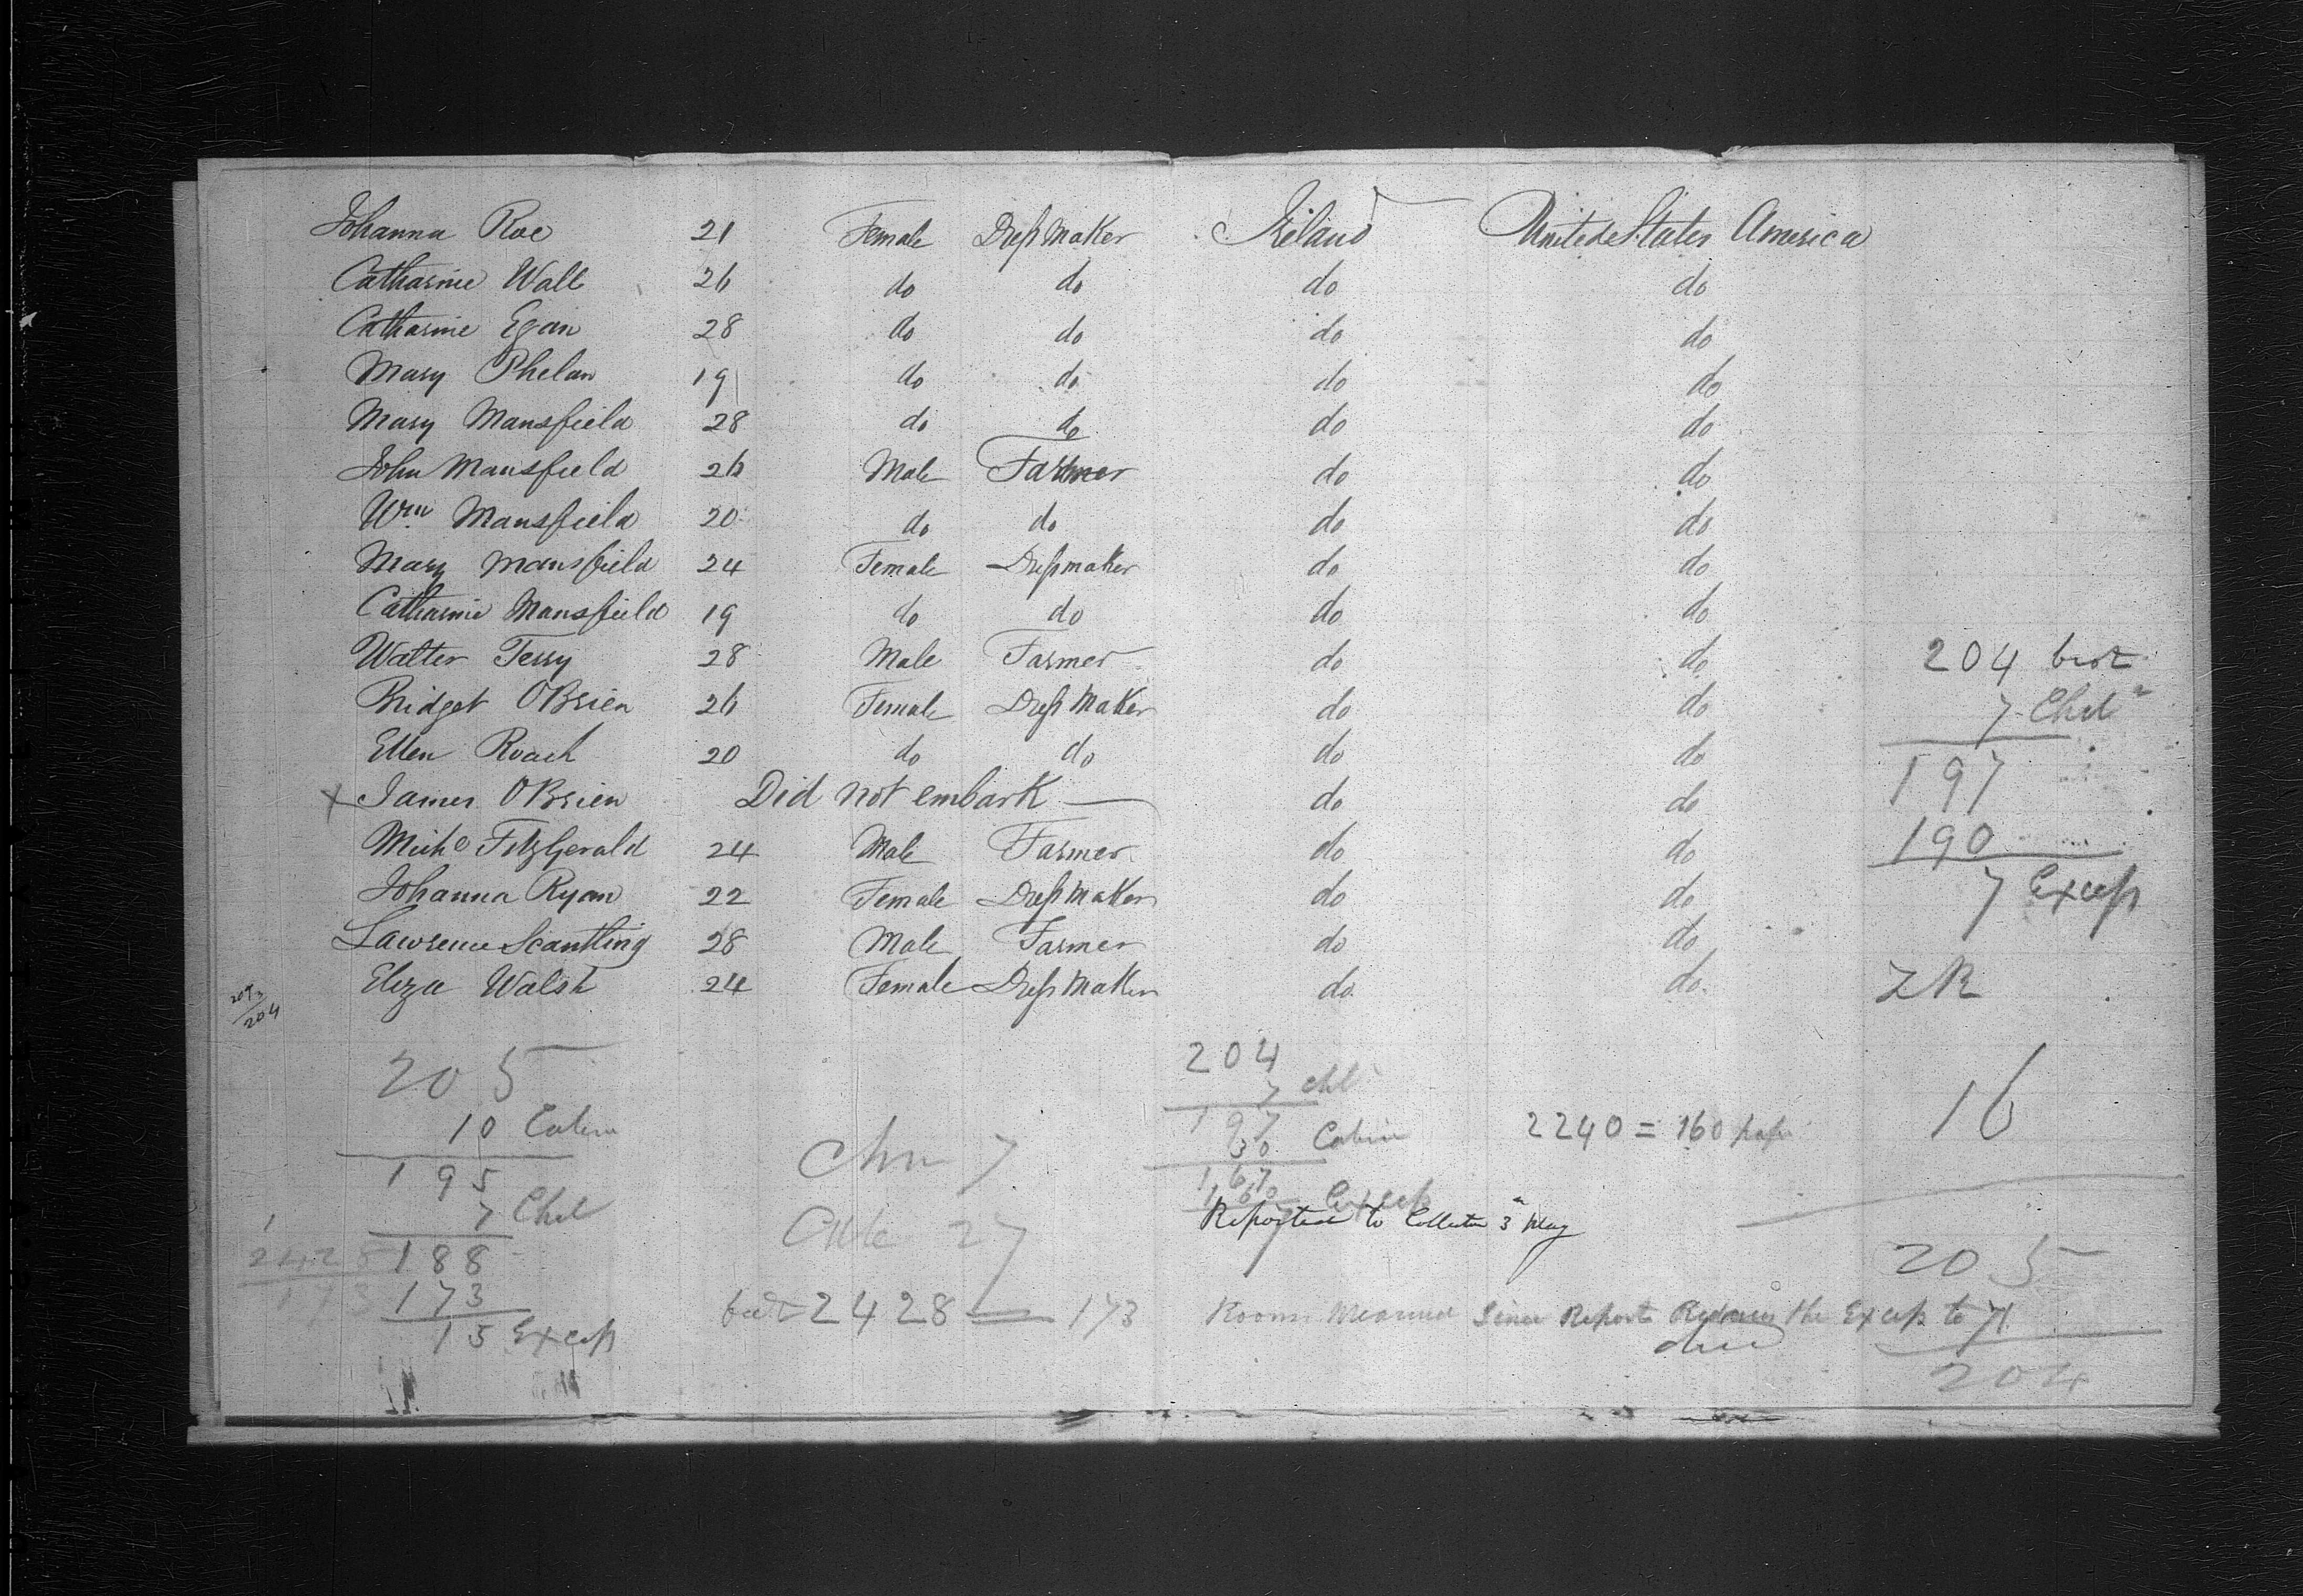 Johanna Roe 21 Female Dress Maker Ireland United States America
Catharine Wall 26 do do do do
Catharine Egan 28 do do do do
Mary Phelan 19 do do do do
Mary Mansfield 28 do do do do
John Mansfield 26 Male Farmer do do
Wm Mansfield 20 do do do do
Mary Mansfield 24 Female Dressmaker do do
Catharine Mansfield 19 do do do do
Walter Terry 28 Male Farmer do do
204 brot
Bridget OBrien 26 Female Dress Maker do do
7 Chd
Ellen Roach 20 do do do do
197
x James OBrien Did not embark do do
Michl FitzGerald 24 Male Farmer do do
190
Johanna Ryan 22 Female Dress Maker do do
7 Excess
Lawrence Scantling 28 Male Farmer do do
Eliza Walsh 24 Female Dress Maker do do
204
205
10 Cabin
195
7 Chd
188
173
15 Excess
Chn 7
27
2428 = 173
204
7 chd
197
30 Cabin
167
160
Excess
7
Reported to Collector 3 May
2240 = 160
Room Measured Since Report Reduces the Excess to 7
16
205
1
204